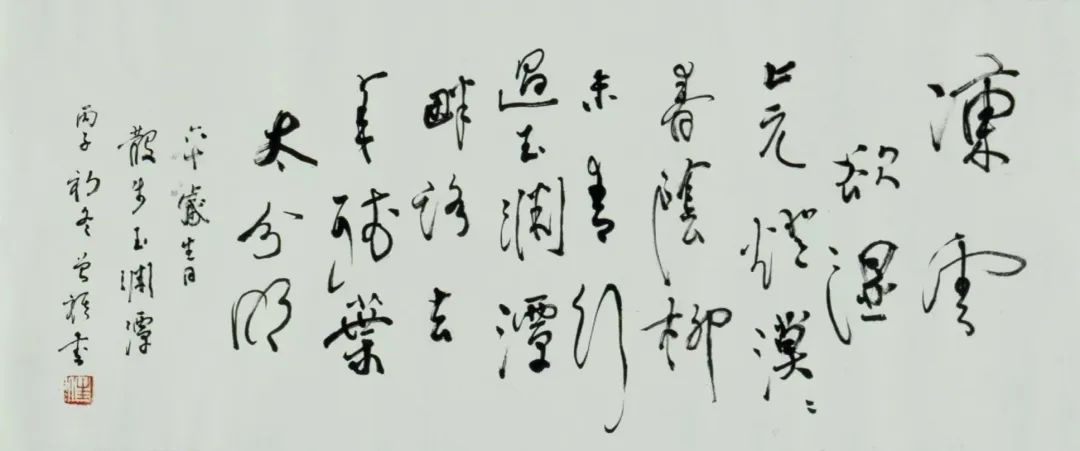 凍雲
欲濕
上元燈漠〻
春陰柳
未青行
過玉淵潭
畔路去
年殘葉
太分明
六十歲生日
散步玉淵潭
丙子初冬曾祺書
汪